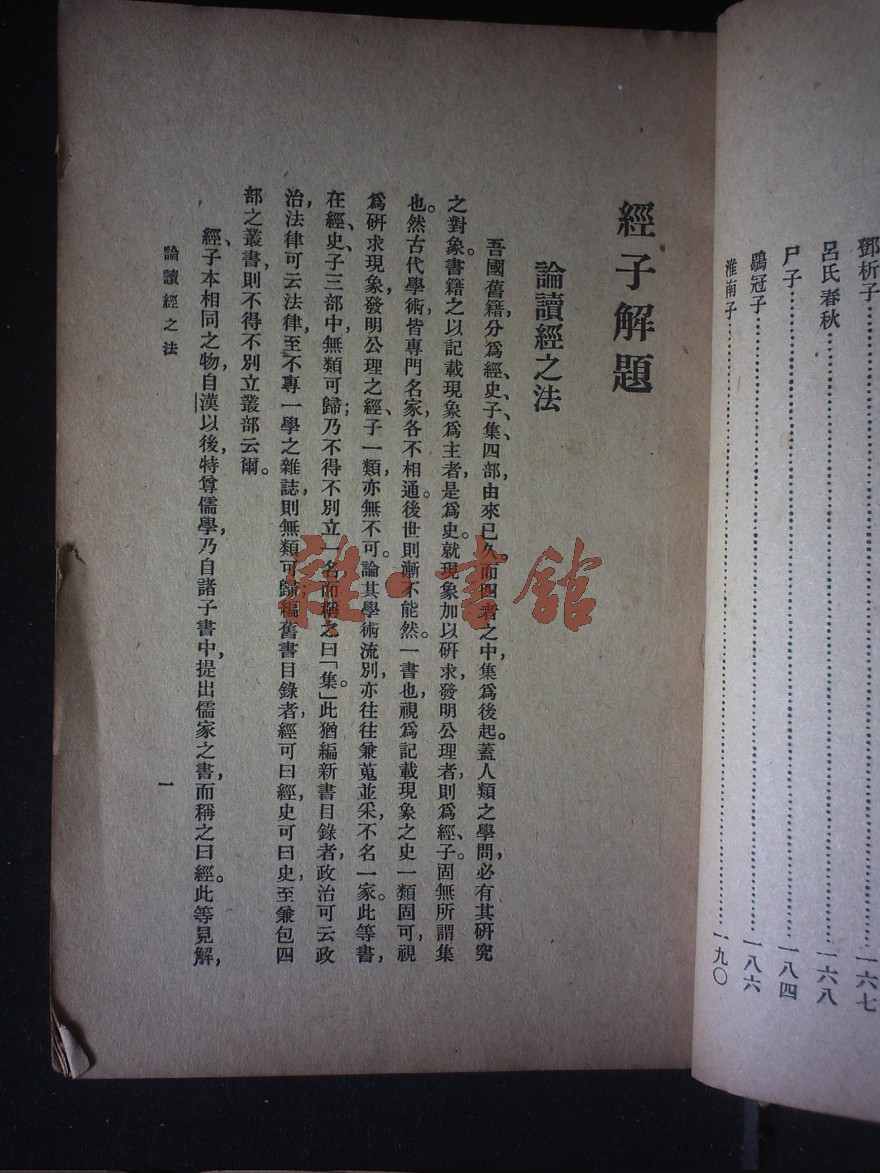 鄧析子……一六七
呂氏春秋……一六八
尸子……一八四
鶡冠子……一八六
淮南子……一九〇
經子解題
論讀經之法
吾國舊籍,分爲經、史、子、集四部,由來已久。而四者之中,集爲後起。蓋人類之學問,必有其研究
之對象。書籍之以記載現象爲主者,是爲史。就現象加以研求,發明公理者,則爲經、子。固無所謂集
也。然古代學術,皆專門名家,各不相通。後世則漸不能然。一書也,視爲記載現象之史一類固可,視
爲研求現象,發明公理之經、子一類,亦無不可。論其學術流別,亦往往兼蒐並采,不名一家。此等書,
在經、史、子三部中,無類可歸;乃不得不別立一名,而稱之曰「集」。此猶編新書目錄者,政治可云政
治,法律可云法律,至不專一學之雜誌,則無類可歸;編舊書目錄者,經可曰經,史可曰史,至兼包四
部之叢書,則不得不別立叢部云爾。
經、子本相同之物,自漢以後,特尊儒學,乃自諸子書中,提出儒家之書,而稱之曰經。此等見解,
論讀經之法
一
雜·書館